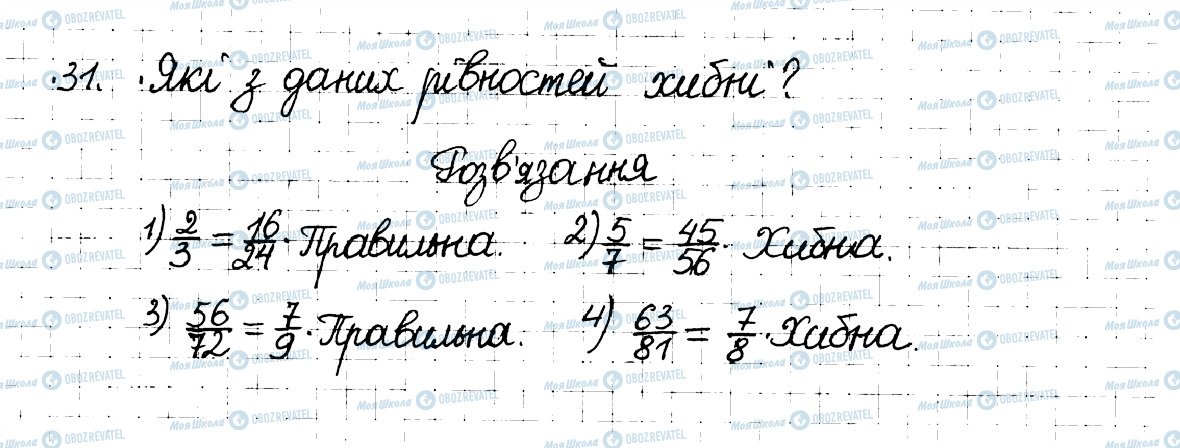 31. Які з даних рівностей хибні?
Розв'язання
1) 2/3 = 16/24. Правильна. 2) 5/7 = 45/56. Хибна.
3) 56/72 = 7/9. Правильна. 4) 63/81 = 7/8. Хибна.